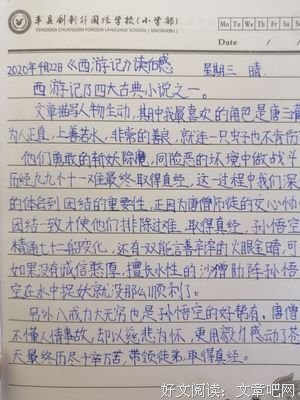 丰县创新外国语学校(小学部)
FENGXIAN CHUANGXIN FOREIGN LANGUAGE SCHOOL (XIAOXUEBU)
Mo Tu We Th Fr Sa Su
Date /
2020年4月2日《西游记》读后感 星期三 晴
西游记是四大古典小说之一。
文章描写人物生动,其中我最喜欢的角色是唐三
为人正直,上善若水,非常的善良,就连一只虫子也不肯伤
他们勇敢的斩妖除魔,同险恶的环境中做战斗
历经九九八十一难最终取得真经,这一过程中我们深
的体会到团结的重要性,正因为唐僧师徒的交心协
团结一致才使他们排除过难,取得真经,孙悟空
精通七十二般变化,还有双能言善辛的火眼金睛,可
如果没有诚信憨厚,擅长水性的沙僧助阵孙悟
空在水中捉妖就没那么顺利了。
另外八戒力大无穷也是孙悟空的好帮有,唐僧
不懂人情事故,却以慈悲为怀,更用毅力感动了苍
天最终历尽千辛万苦,带领徒弟,取得真经。
好文阅读:文章吧网